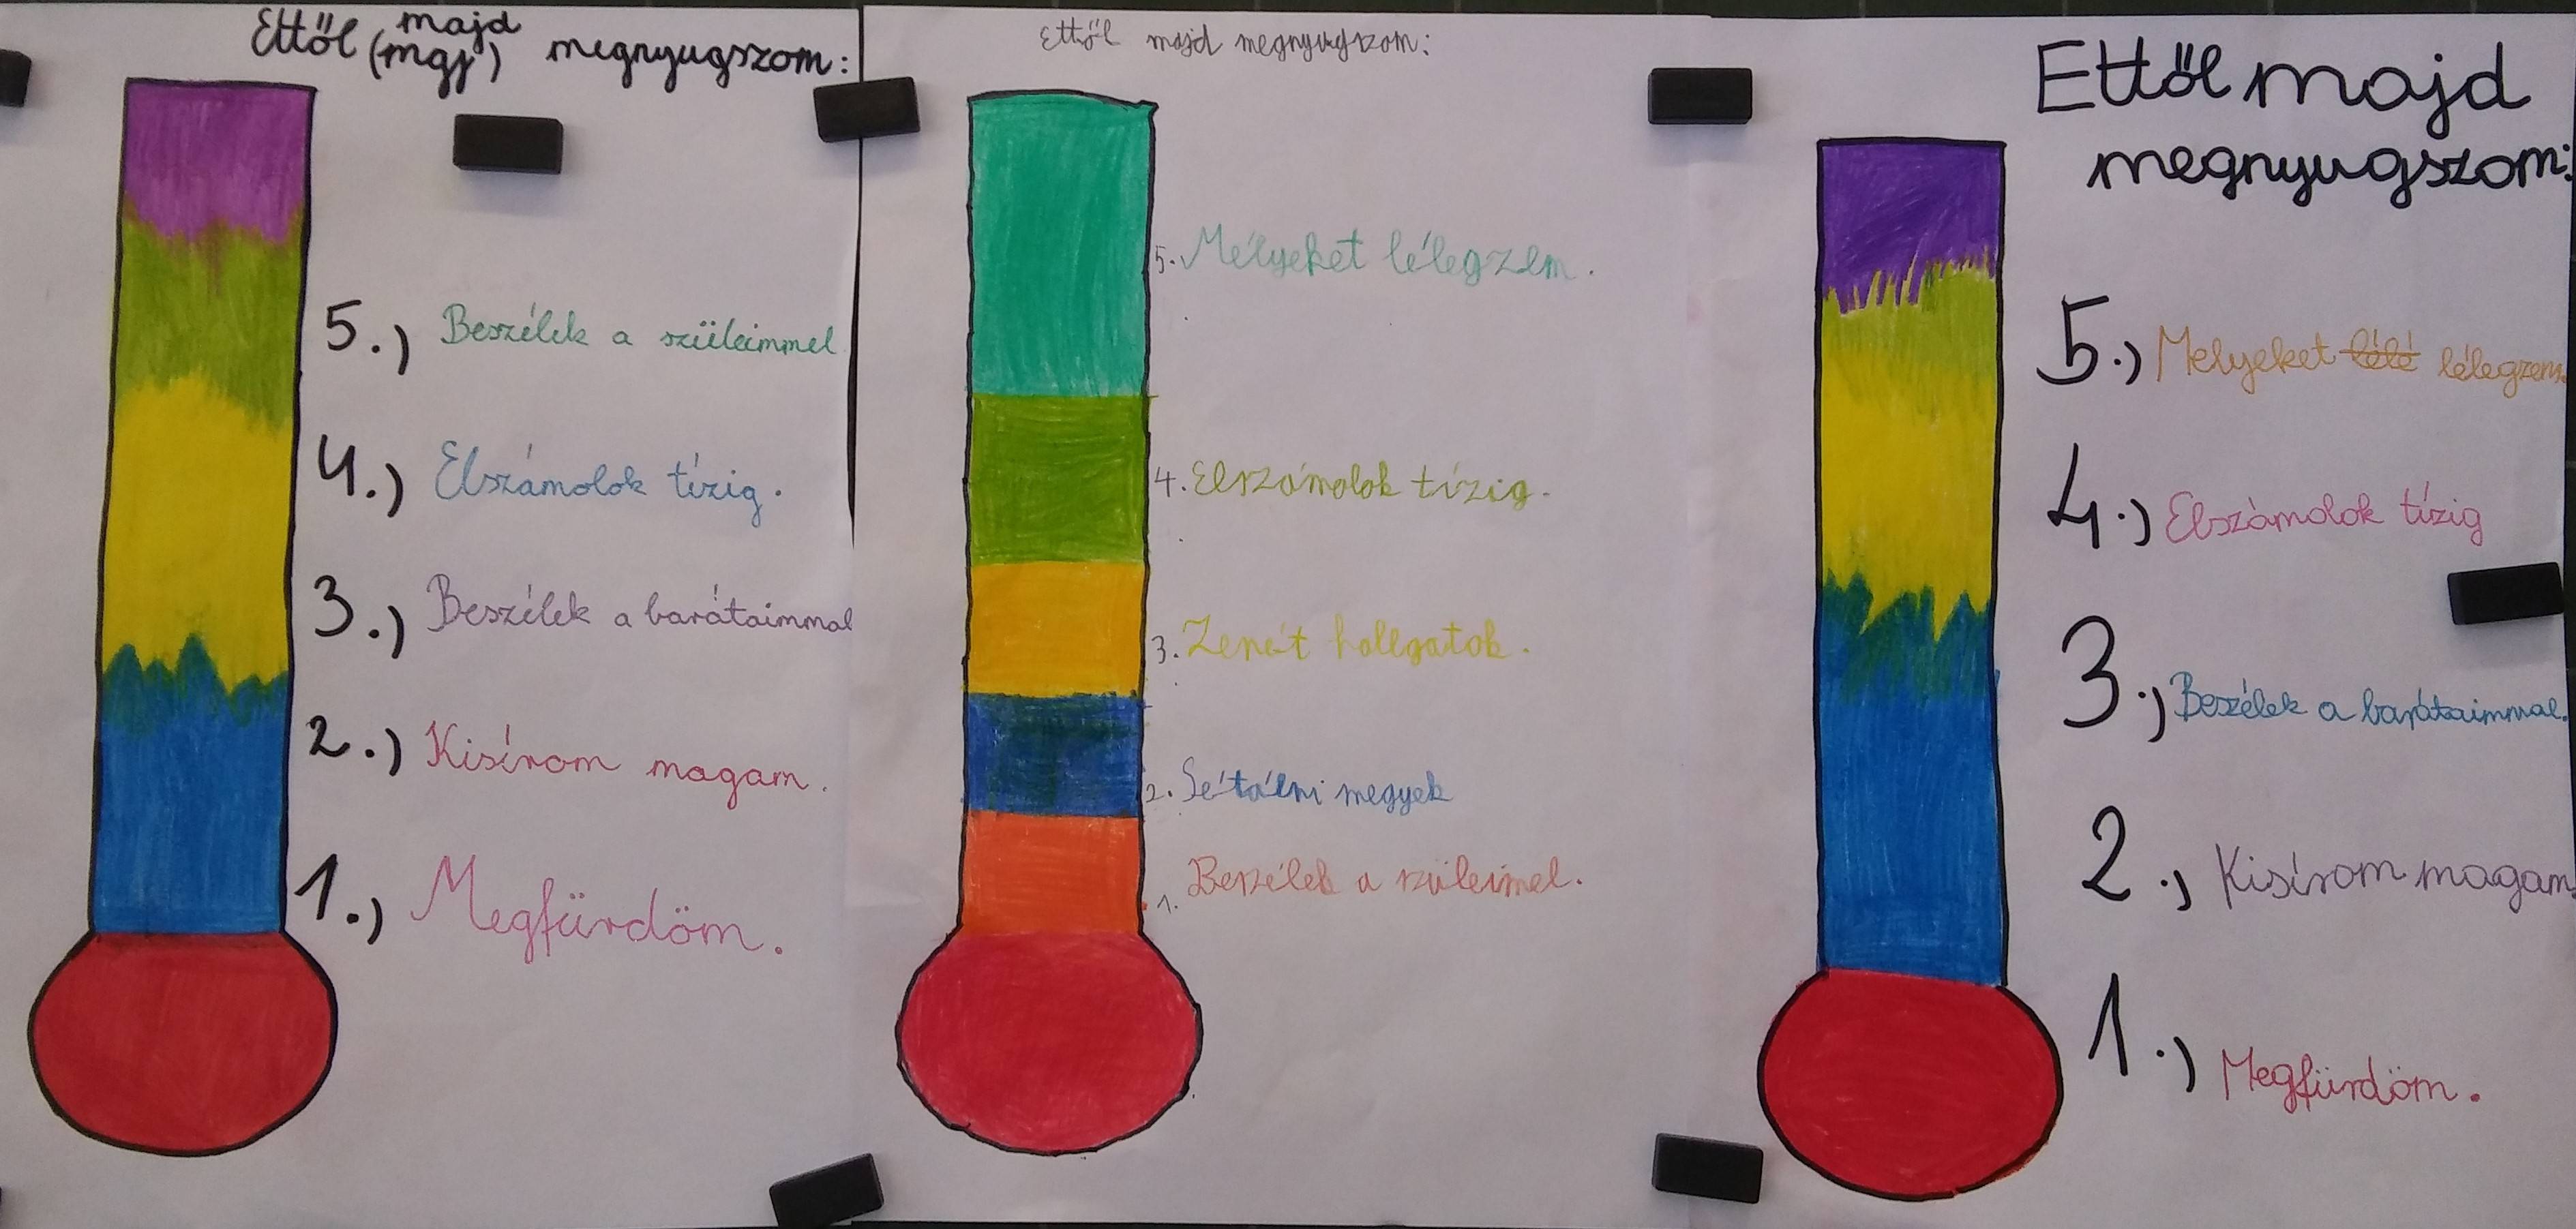 Ettől majd (mgj) megnyugszom:
5.) Beszélek a szüleimmel
4.) Elszámolok tízig.
3.) Beszélek a barátaimmal
2.) Kisírom magam.
1.) Megfürdöm.
Ettől majd megnyugszom:
5. Mélyeket lélegzem.
4. Elszámolok tízig.
3. Zenét hallgatok.
2. Sétálni megyek
1. Beszélek a szüleimel.
Ettől majd
megnyugszom:
5.) Melyeket lélé lélegzem.
4.) Elszámolok tízig
3.) Beszélek a barátaimmal.
2.) Kisírom magam
1.) Megfürdöm.